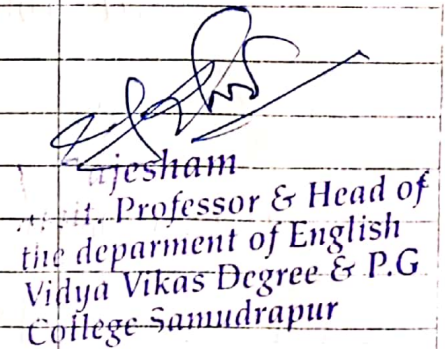 Professor & Head of
the deparment of English
Vidya Vikas Degree & P.G
College Samudrapur